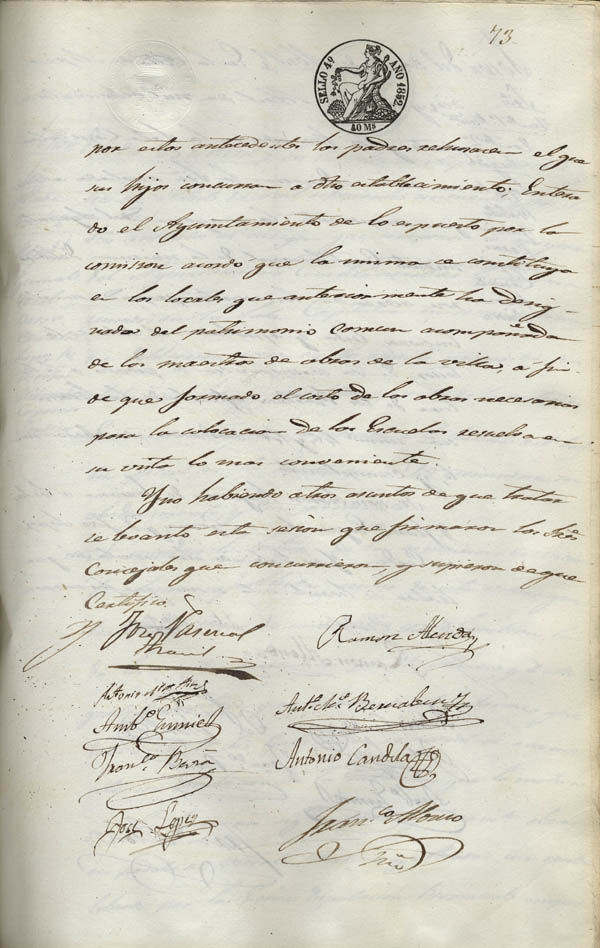 73
SELLO 4º AÑO 1852
40 Ms
por estos antecedentes los padres rehusacen el que
sus hijos concurran a dho establecimiento; Entera
do el Ayuntamiento de lo espuesto por la
comision acordo que la misma se constituya
en los locales que anteriormente ha desig
nados del patrimonio comun acompañada
de los maestros de obras de la villa, á fin
de que formado el costo de las obras necesarias
para la colocacion de las Escuelas resuelva en
su vista lo mas conveniente.
Y no habiendo otros asuntos de que tratar
se levanto esta sesion que firmaron los Sres
Concejales que concurrieron, y supieron de que
Certifico.
José Pascual
Ramon Alenda
Antonio
Antº Mª Bernabeu
Ambº Gumiel
Antonio Candela
Franco
José Lopez
Juan Alfonso
Srio